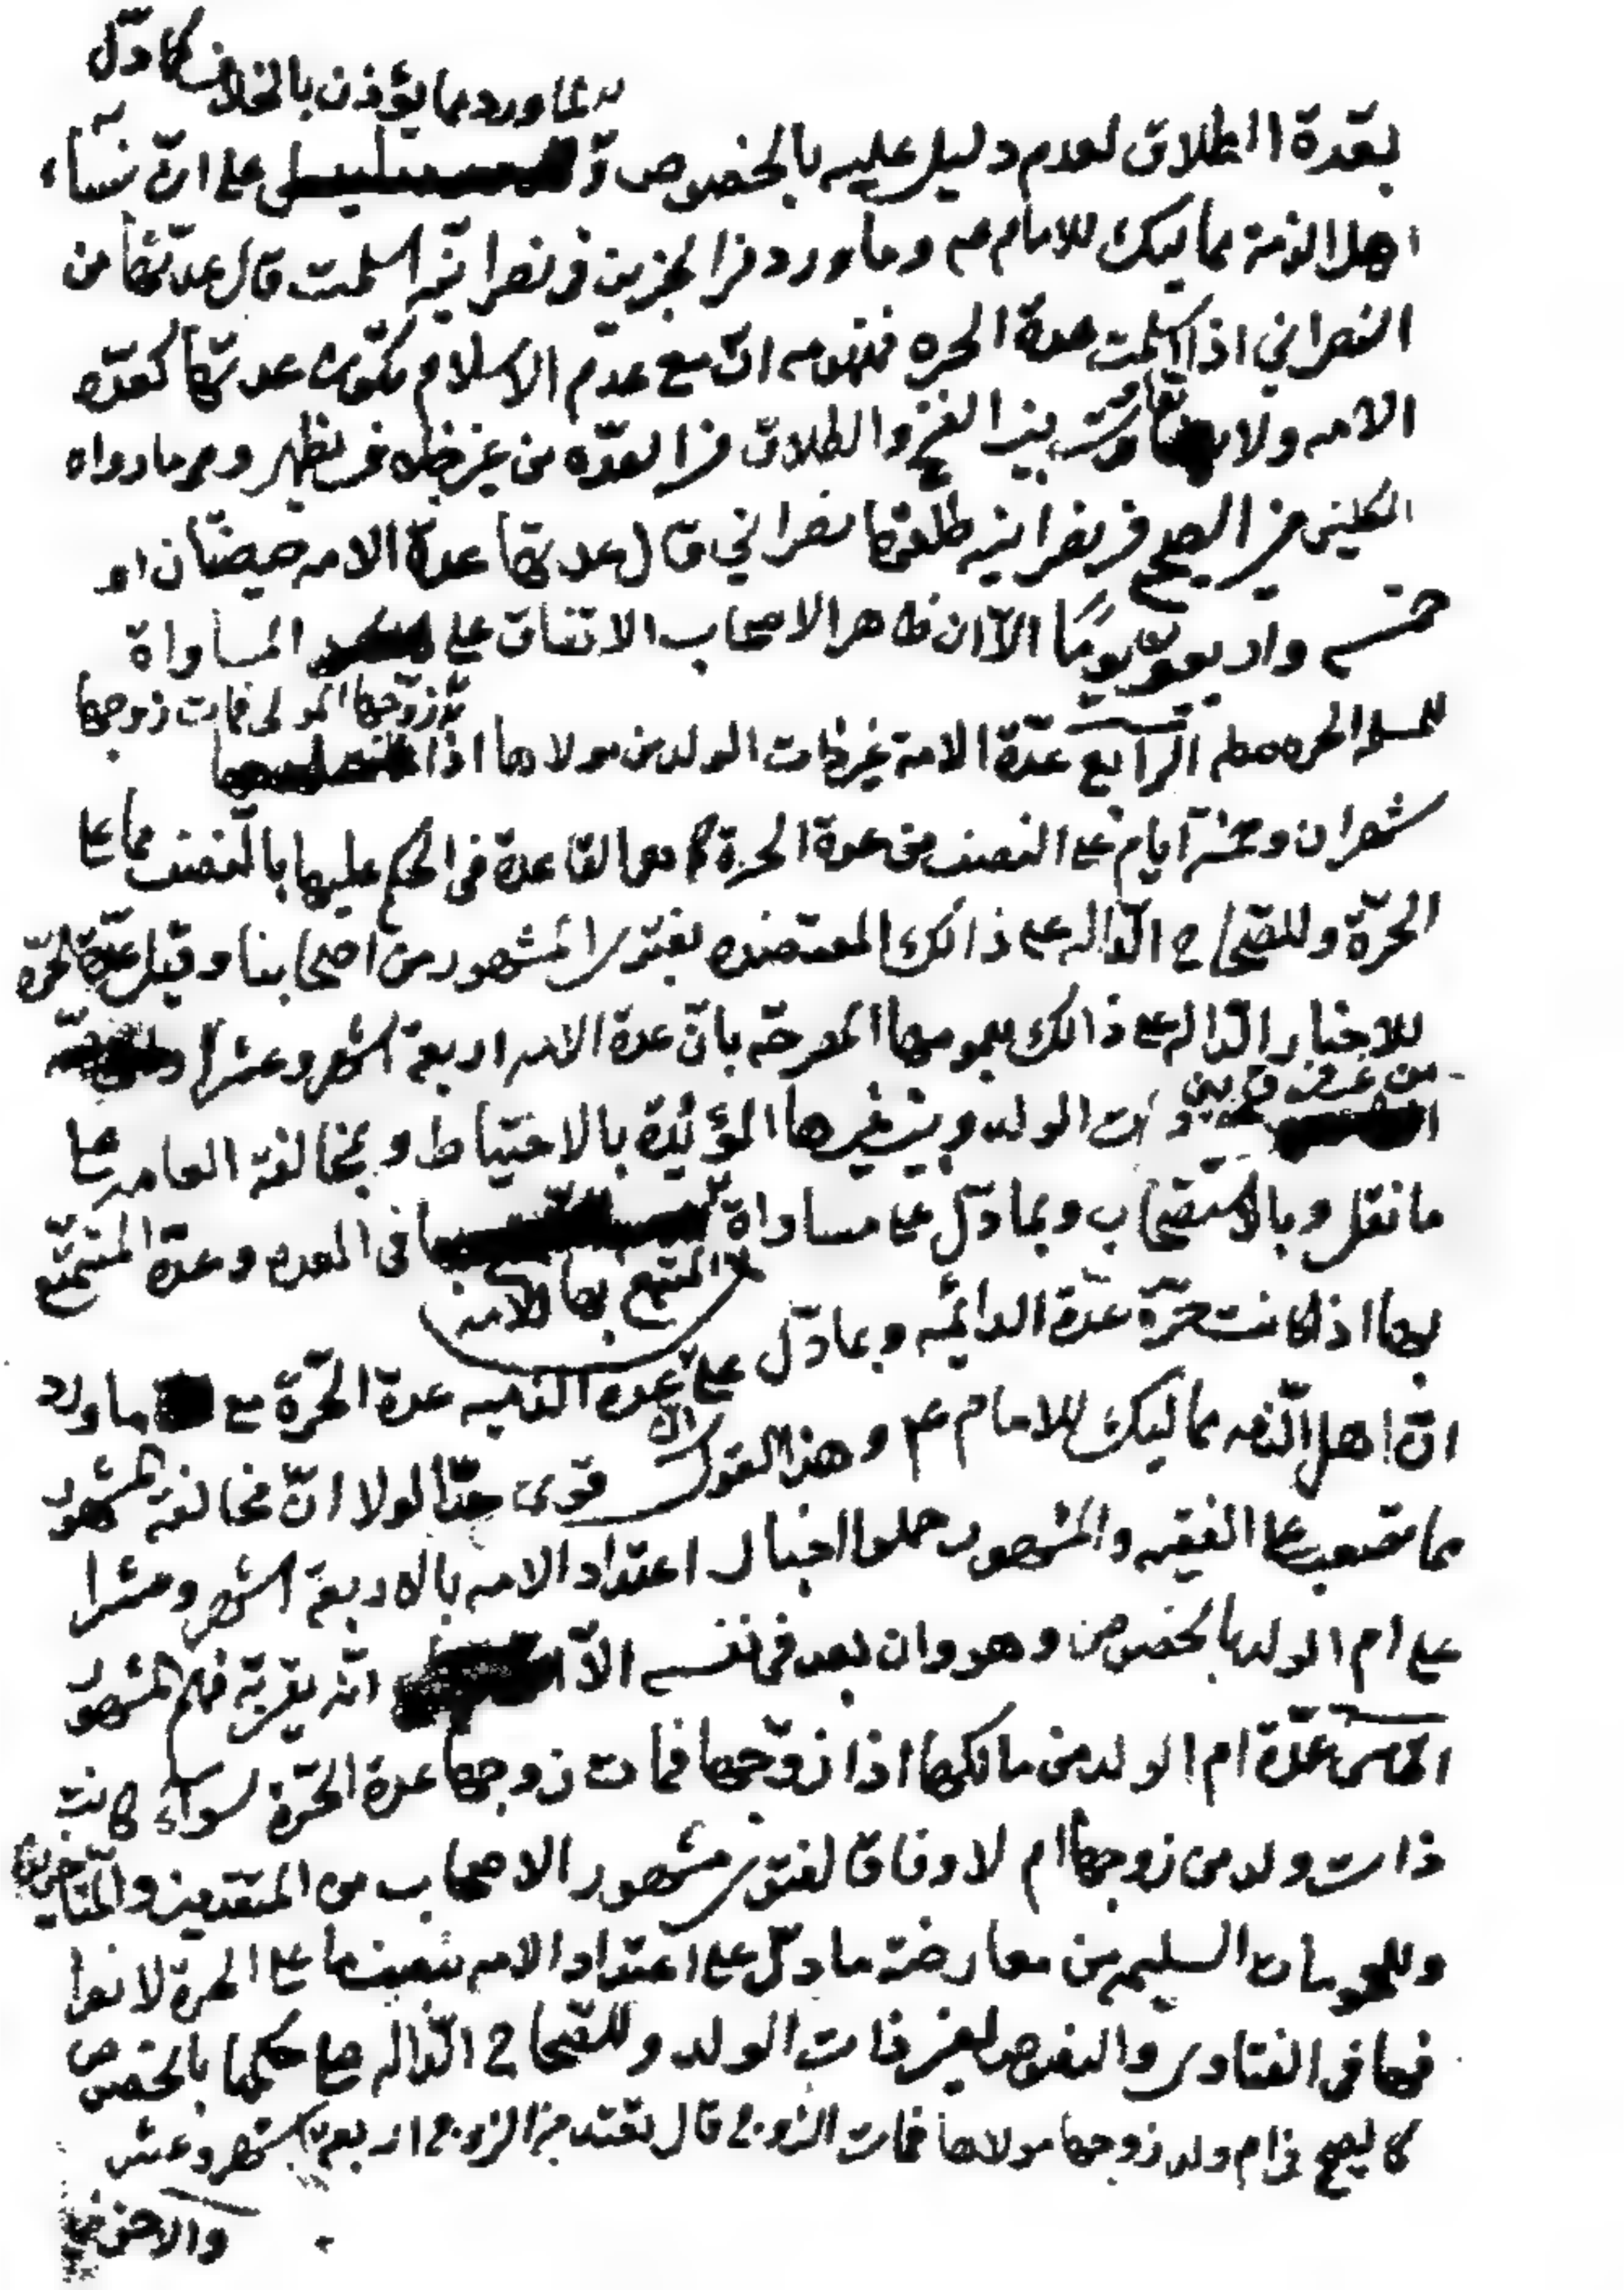 نعم ورد ما يؤذن بالخلاف كما دلّ
بعدة الطلاق لعدم دليل عليه بالخصوص على انّ نساء
اهل الذمة مماليك للامام عم وما ورد في الخبرين في نصرانيّه اسلمت قال عدّتها من
النصراني اذا اسلمت عدة الحره فمفهومه انّ مع عدم الاسلام تكون عدتها كعدّه
الامه ولا تفاوت بين الفسخ والطلاق في العدّه من غير خلاف يظهر وهو ما رواه
الكليني في الصحيح في نصرانيه طلقها نصراني قال عدتها عدة الامه حيضتان او
خمسه واربعون يومًا الاّ ان ظاهر الاصحاب الاتفاق على المساواة
زوّجها المولى فمات زوجها
للمسلمه الحره الرابع عدّة الامة غير ذات الولد من مولاها اذا
شهران وخمسة آيام على النصف من عدة الحرة كما هو القاعدة في الحكم عليها بالنصف مما على
الحرّة وللصّحاح الدّاله على ذالك المعتضده بفتوى المشهور من اصحابنا وقيل عدّة الحرّه
للاخبار الدّاله على ذالك بعمومها المصرحّه بانّ عدة الامه اربعة اشهر وعشرا
من غير فرق بين
ذات الولد وبين غيرها المؤيّدة بالاحتياط وبمخالفة العامه على
ما نقل وبالاستصحاب وبما دلّ على مساواة في العده وعدة المتمتّع
المتمتع بها للامه
بها اذا كانت حرّة عدّة الدائمه وبما دلّ على عدة الذميه عدة الحرّة مع ما ورد
انّ اهل الذّمه مماليك للامام عم وهذا القول قوى جدّا لولا انّ مخالفة المشهور
مما تصعب على الفقيه والمشهور حملوا اخبار اعتداد الامه بالاربعة اشهر وعشرا
على ام الولد بالخصوص وهو وان بعد في نفسه الاّ انّه يقربه فهم المشهور
الخامس عدّة ام الولد من مالكها اذا زوّجها فمات زوجها عدة الحرّة سواء كانت
ذات ولد من زوجها ام لا وفاقا لفتوى مشهور الاصحاب من المتقدمين والمتاخرين
وللعمومات السليمه من معارضة ما دلّ على اعتداد الامه بنصف ما على الحرة لانها
فيها في الفتاوى والنصوص لغير ذات الولد وللصّحاح الدّاله على حكمها بالخصوص
كالصحيح في ام ولد زوجها مولاها فمات الزوج قال تعتد من الزوج اربعة اشهر وعشر
والاخر في